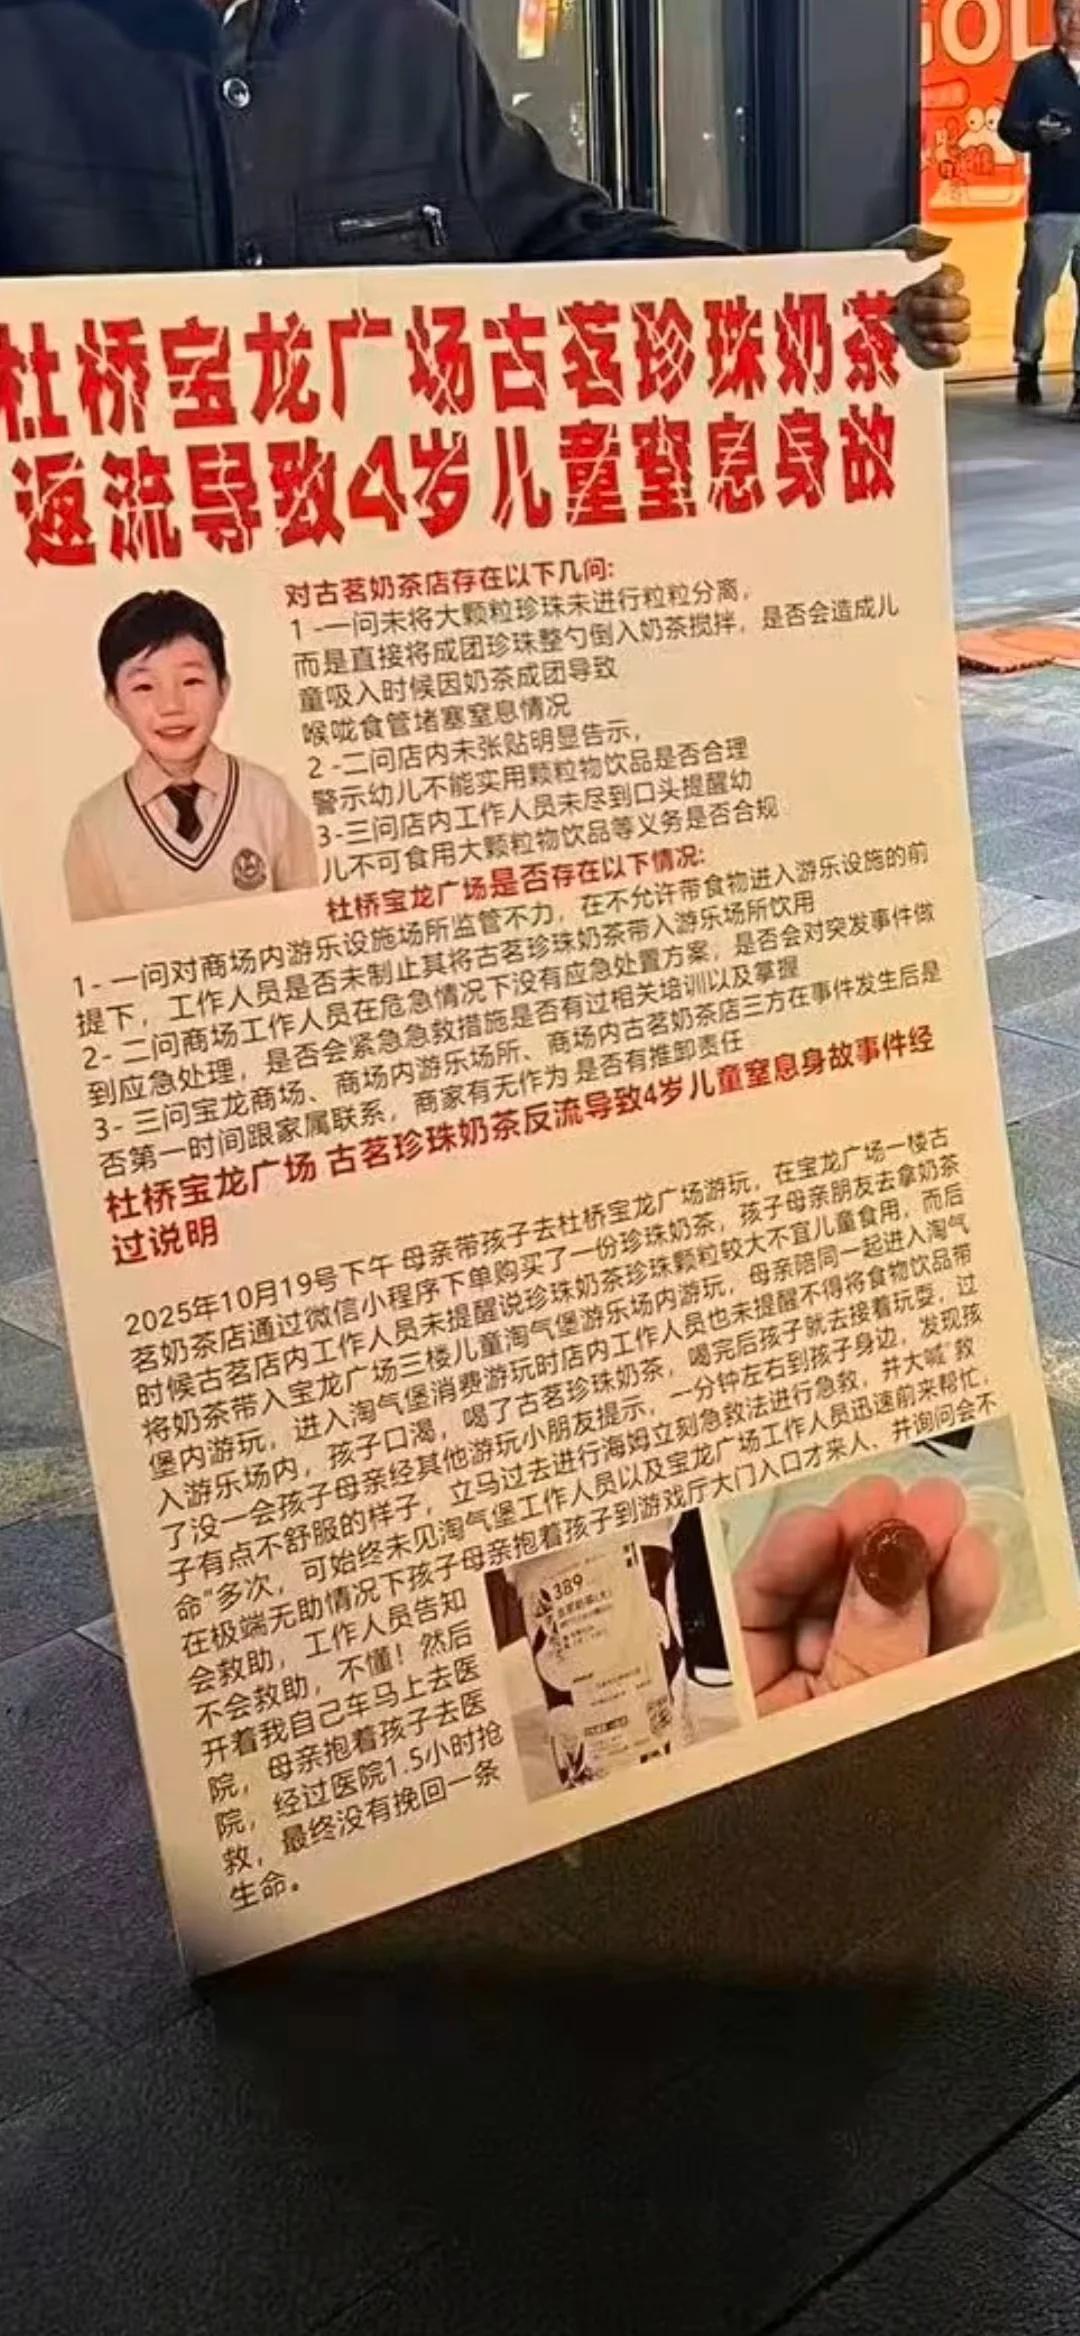 GOL
杜桥宝龙广场古茗珍珠奶茶
返流导致4岁儿童窒息身故
对古茗奶茶店存在以下几问:
1 -一问未将大颗粒珍珠未进行粒粒分离，
而是直接将成团珍珠整勺倒入奶茶搅拌，是否会造成儿
童吸入时候因奶茶成团导致
喉咙食管堵塞窒息情况
2 -二问店内未张贴明显告示，
警示幼儿不能实用颗粒物饮品是否合理
3-三问店内工作人员未尽到口头提醒幼
儿不可食用大颗粒物饮品等义务是否合规
杜桥宝龙广场是否存在以下情况:
1- 一问对商场内游乐设施场所监管不力，在不允许带食物进入游乐设施的前
提下，工作人员是否未制止其将古茗珍珠奶茶带入游乐场所饮用
2- 二问商场工作人员在危急情况下没有应急处置方案，是否会对突发事件做
到应急处理，是否会紧急急救措施是否有过相关培训以及掌握
3- 三问宝龙商场、商场内游乐场所、商场内古茗奶茶店三方在事件发生后是
否第一时间跟家属联系，商家有无作为 是否有推卸责任
杜桥宝龙广场 古茗珍珠奶茶反流导致4岁儿童窒息身故事件经
过说明
2025年10月19号下午 母亲带孩子去杜桥宝龙广场游玩，在宝龙广场一楼古
茗奶茶店通过微信小程序下单购买了一份珍珠奶茶，孩子母亲朋友去拿奶茶
时候古茗店内工作人员未提醒说珍珠奶茶珍珠颗粒较大不宜儿童食用，而后
将奶茶带入宝龙广场三楼儿童淘气堡游乐场内游玩，母亲陪同一起进入淘气
堡内游玩，进入淘气堡消费游玩时店内工作人员也未提醒不得将食物饮品带
入游乐场内，孩子口渴，喝了古茗珍珠奶茶，喝完后孩子就去接着玩耍，过
了没一会孩子母亲经其他游玩小朋友提示，一分钟左右到孩子身边，发现孩
子有点不舒服的样子，立马过去进行海姆立刻急救法进行急救，并大喊“救
命”多次，可始终未见淘气堡工作人员以及宝龙广场工作人员迅速前来帮忙，
在极端无助情况下孩子母亲抱着孩子到游戏厅大门入口才来人、并询问会不
会救助，工作人员告知
不会救助，不懂！然后
开着我自己车马上去医
院，母亲抱着孩子去医
院，经过医院1.5小时抢
救，最终没有挽回一条
生命。
389